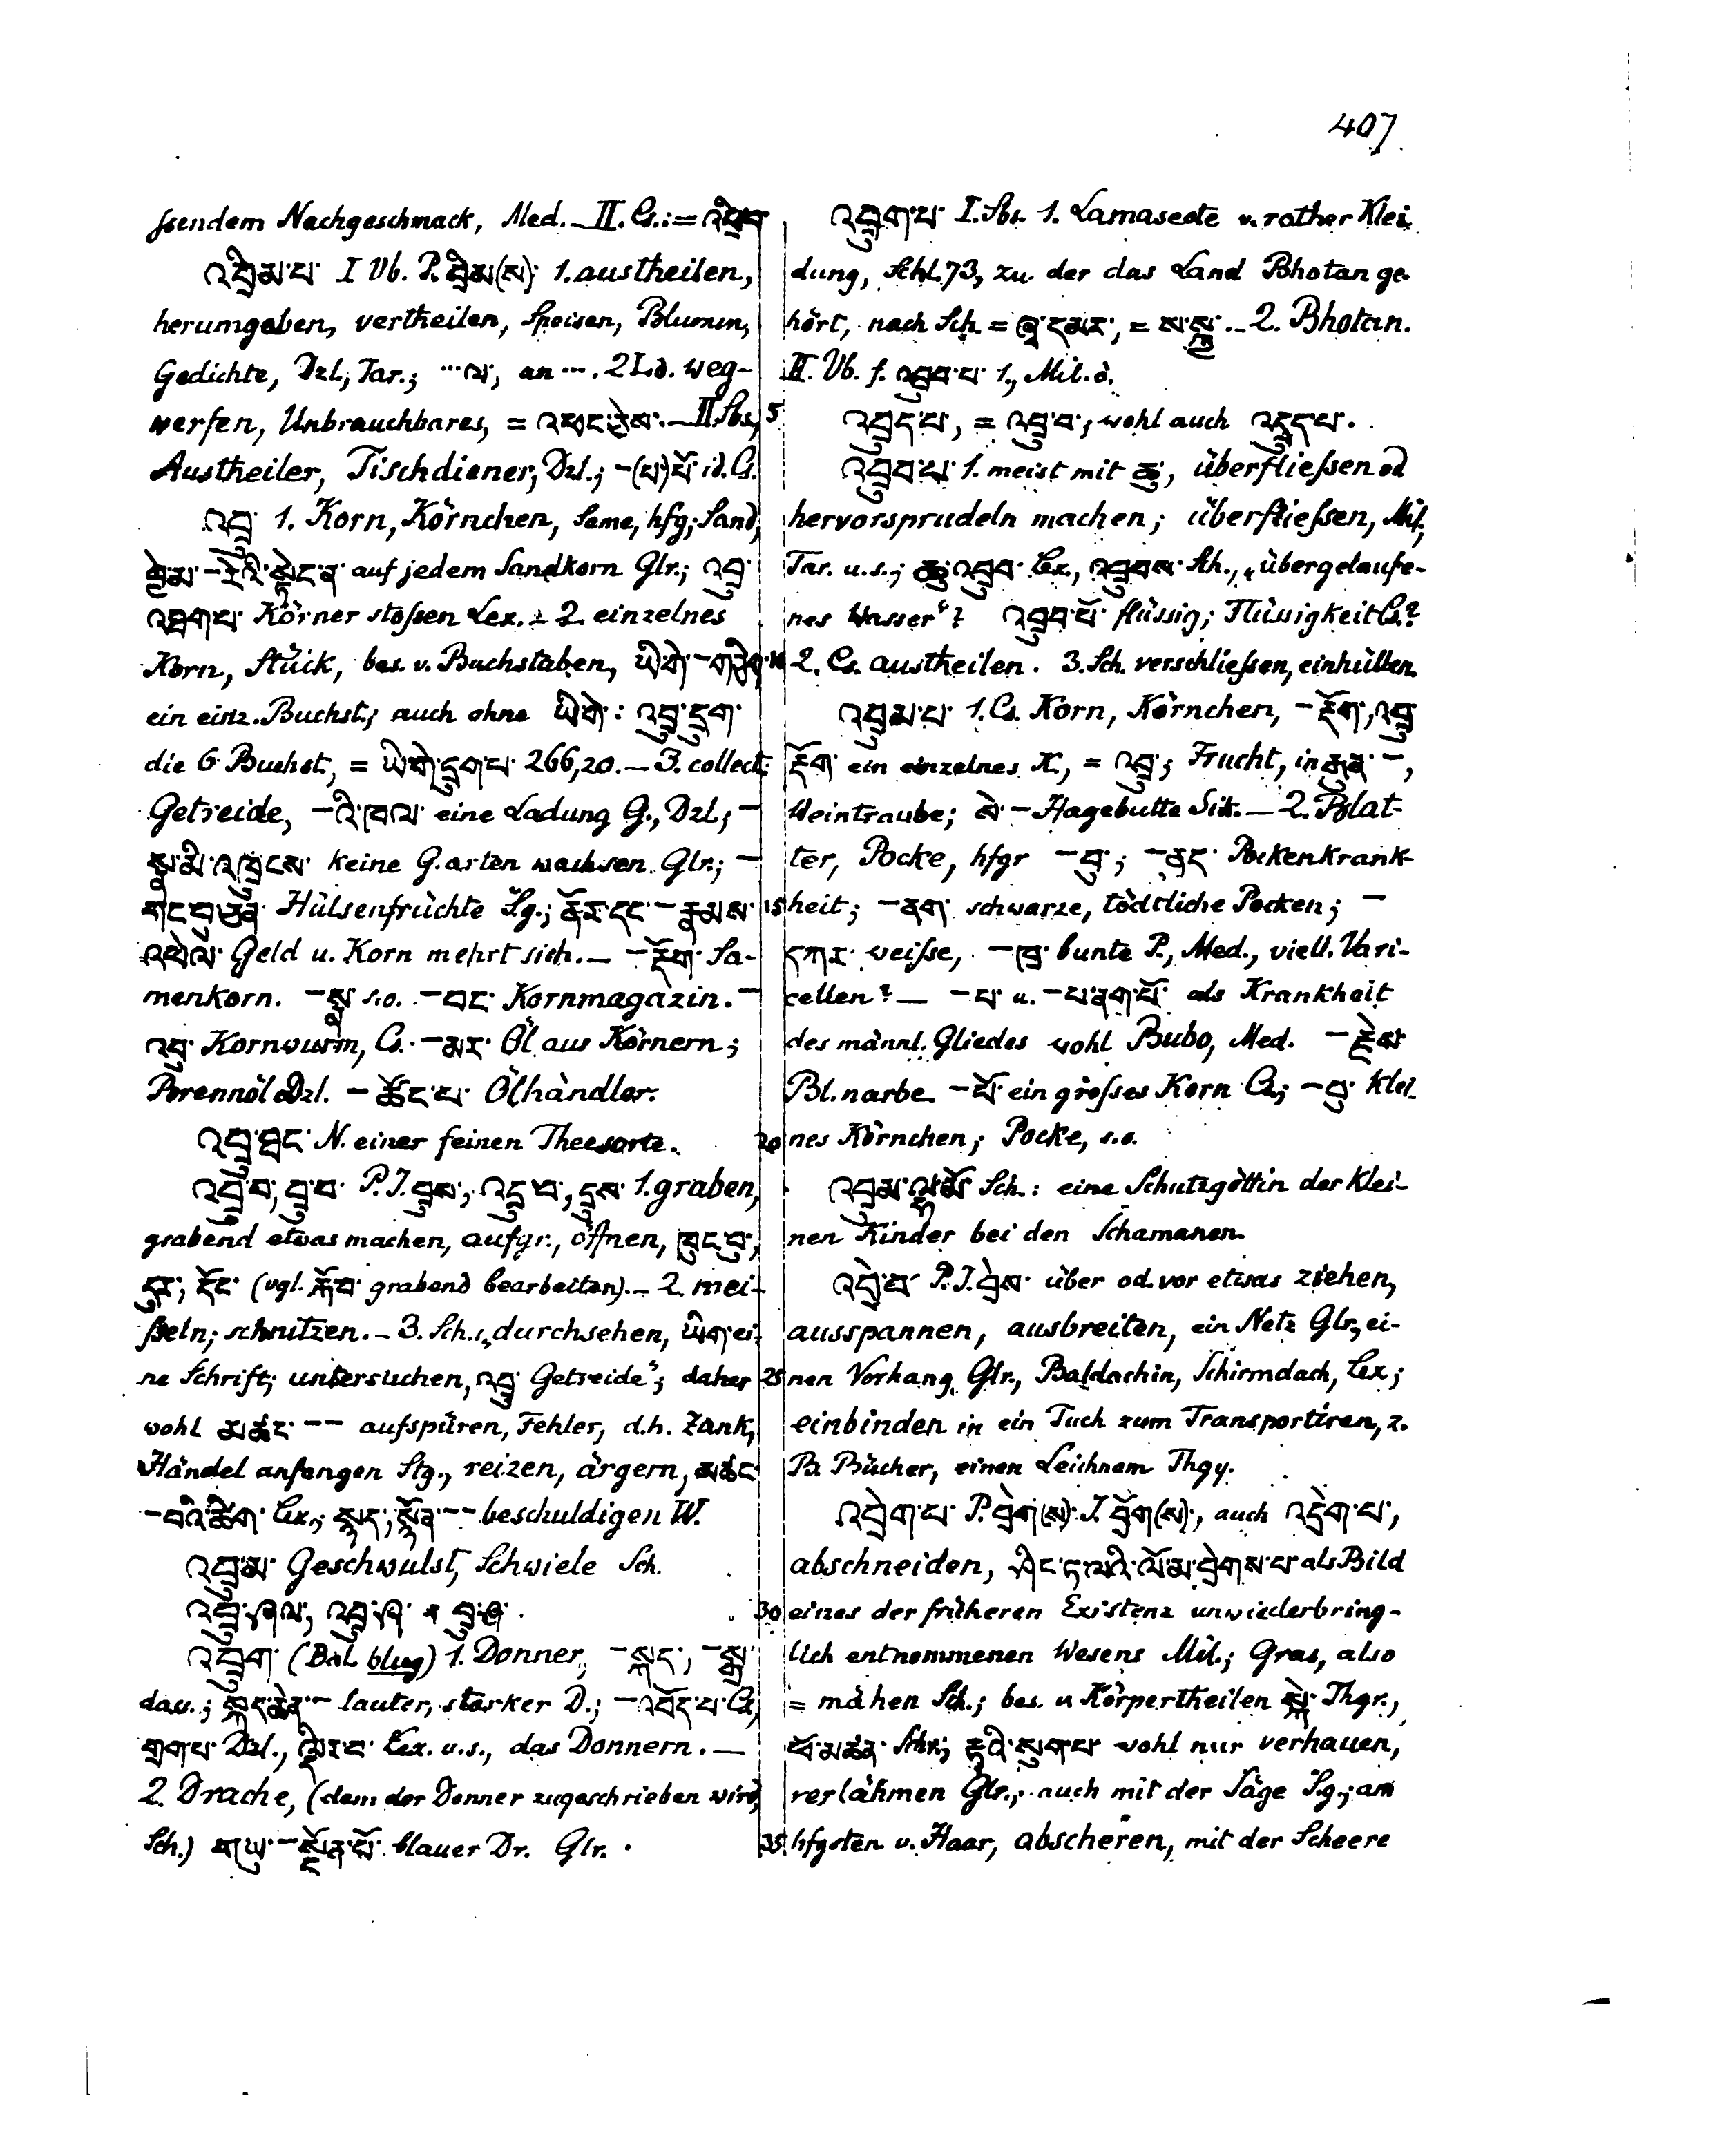 407
ssendem Nachgeschmack, Med. – II. Cs.: = འབྲིབ་
འབྲིམ་པ་ I Vb. P. བྲིམ(ས)་ 1. austheilen,
herumgeben, vertheilen, Speisen, Blumen,
Gedichte, Dzl., Tar.; ...ལ་, an .... 2 Ld. weg-
werfen, Unbrauchbares, = – II. Sbs,
Austheiler, Tischdiener, Dzl.; –(པ་)པོ་ id. Cs.
འབྲུ་ 1. Korn, Körnchen, Same, hfg; Sand,
བྱེ་མ་ –རེའི་སྟེང་ན་ auf jedem Sandkorn Glr.; འབྲུ་
འཐག་པ་ Körner stossen Lex. – 2. einzelnes
Korn, Stück, bes. v. Buchstaben, ཡི་གེ་ –གཅིག་
ein einz. Buchst.; auch ohne ཡིགེ་: འབྲུ་དྲུག་
die 6 Buchst., = ཡིགེ་དྲུག་པ་ 266,20. – 3. collect.
Getreide, –འི་ཁལ་ eine Ladung G., Dzl.; –
སྣ་མི་འཁྲུངས་ keine G.arten wachsen Glr.; –
གང་བུ་ཅན་ Hülsenfrüchte Lg.; ནོར་དང་ –རྣམས་
འཕེལ་ Geld u. Korn mehrt sich. – –རྡོག་ Sa-
menkorn. –སྣ་ s.o. –བང་ Kornmagazin. –
འབུ་ Kornwurm, Cs. –མར་ Öl aus Körnern;
Brennöl Dzl. –ཚོང་པ་ Ölhändler.
འབྲུ་ཐང་ N. einer feinen Theesorte.
འབྲུ་བ་, བྲུ་བ་ P.I. བྲུས་, འདྲུ་བ་, དྲུས་ 1. graben,
grabend etwas machen, aufgr., öffnen, ཁུང་བུ་,
དུར་, དོང་ (vgl. རྐོ་བ་ grabend bearbeiten). – 2. mei-
sseln; schnitzen. – 3. Sch.: „durchsehen, ཡིག་ ei-
ne Schrift; untersuchen, འབྲུ་ Getreide"; daher
wohl མཚང་ –– aufspüren, Fehler, d.h. Zank,
Händel anfangen Stg., reizen, ärgern, མཚང་
–བའི་ཚིག་ Lex.; སྐད་, སྐྱོན་ –– beschuldigen W.
འབྲུ་མ་ Geschwulst, Schwiele Sch.
འབྲུ་ཤལ་, འབྲུ་ཤ་ བྲུ་ཤ་.
འབྲུག་ (Bal. blug) 1. Donner, –སྐད་, –སྒྲ་
dass.; སྐད་ཆེན་ – lauter, starker D.; –འབོད་པ་ Cs,
གྲག་པ་ Dzl., ལྡིར་བ་ Lex. u.s., das Donnern. –
2. Drache, (dem der Donner zugeschrieben wird,
Sch.) གཡུ་ –སྔོན་པོ་ blauer Dr. Glr.
འབྲུག་པ་ I. Sbs. 1. Lamasecte v. rother Klei-
dung, Schl. 73, zu der das Land Bhotan ge-
hört, nach Sch. = ཞྭ་དམར་, = ས་སྐྱ་. – 2. Bhotan.
II. Vb. f. འབྲུབ་པ་ 1., Mil. ö.
འབྲུད་པ་, = འབྲུ་བ་; wohl auch འདྲུད་པ་.
འབྲུབ་པ་ 1. meist mit ཆུ་, überfliessen od
hervorsprudeln machen; überfliessen, Mil.,
Tar. u.s.; ཆུ་འབྲུབ་ Lex, འབྲུབས་ Sch., „übergelaufe-
nes Wasser"? འབྲུབ་པོ་ flüssig; Flüssigkeit Cs.?
2. Cs. austheilen. 3. Sch. verschliessen, einhüllen.
འབྲུམ་པ་ 1. Cs. Korn, Körnchen, –རྡོག་, འབྲུ་
རྡོག་ ein einzelnes K., = འབྲུ་; Frucht, in རྒུན་ –,
Weintraube; སེ་ – Hagebutte Sik. – 2. Blat-
ter, Pocke, hfgr –བུ་; –ནད་ Pockenkrank-
heit; –ནག་ schwarze, tödtliche Pocken; –
དཀར་ weisse, –ཁྲ་ bunte P., Med., viell. Vari-
cellen? – –པ་ u. –པ་ནག་པོ་ als Krankheit
des männl. Gliedes wohl Bubo, Med. –རྗེས་
Bl.narbe –པོ་ ein grosses Korn Cs; –བུ་ klei-
nes Körnchen; Pocke, s.o.
འབྲུམ་ལྷ་མོ་ Sch.: eine Schutzgöttin der klei-
nen Kinder bei den Schamanen.
འབྲེ་བ་ P.I. བྲེས་ über od. vor etwas ziehen,
ausspannen, ausbreiten, ein Netz Glr., ei-
nen Vorhang Glr., Baldachin, Schirmdach, Lex;
einbinden in ein Tuch zum Transportiren, z.
B. Bücher, einen Leichnam Thgy.
འབྲེག་པ་ P. བྲེག(ས)་ I. བྲོག(ས)་, auch འདྲེག་པ་,
abschneiden, ཤིང་ཏ་ལའི་ལོ་མ་བྲེགས་པ་ als Bild
eines der früheren Existenz unwiederbring-
lich entnommenen Wesens Mil.; Gras, also
= mähen Sch.; bes. v. Körpertheilen Thgr.,
ཕོ་མཚན་ Schr.; རྟའི་སུག་པ་ wohl nur verhauen,
verlähmen Glr.; auch mit der Säge Lg.; am
hfgsten v. Haar, abscheren, mit der Scheere
5
10
15
20
25
30
35